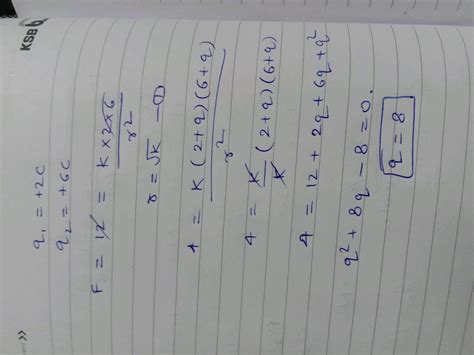 KSB
q₁ = +2C
q₂ = +6C
F = 12 = K×2×6 / r²
r = √K —①
4 = K (2+q)(6+q) / r²
4 = K/K (2+q)(6+q)
4 = 12 + 2q + 6q + q²
q² + 8q - 8 = 0.
q = 8